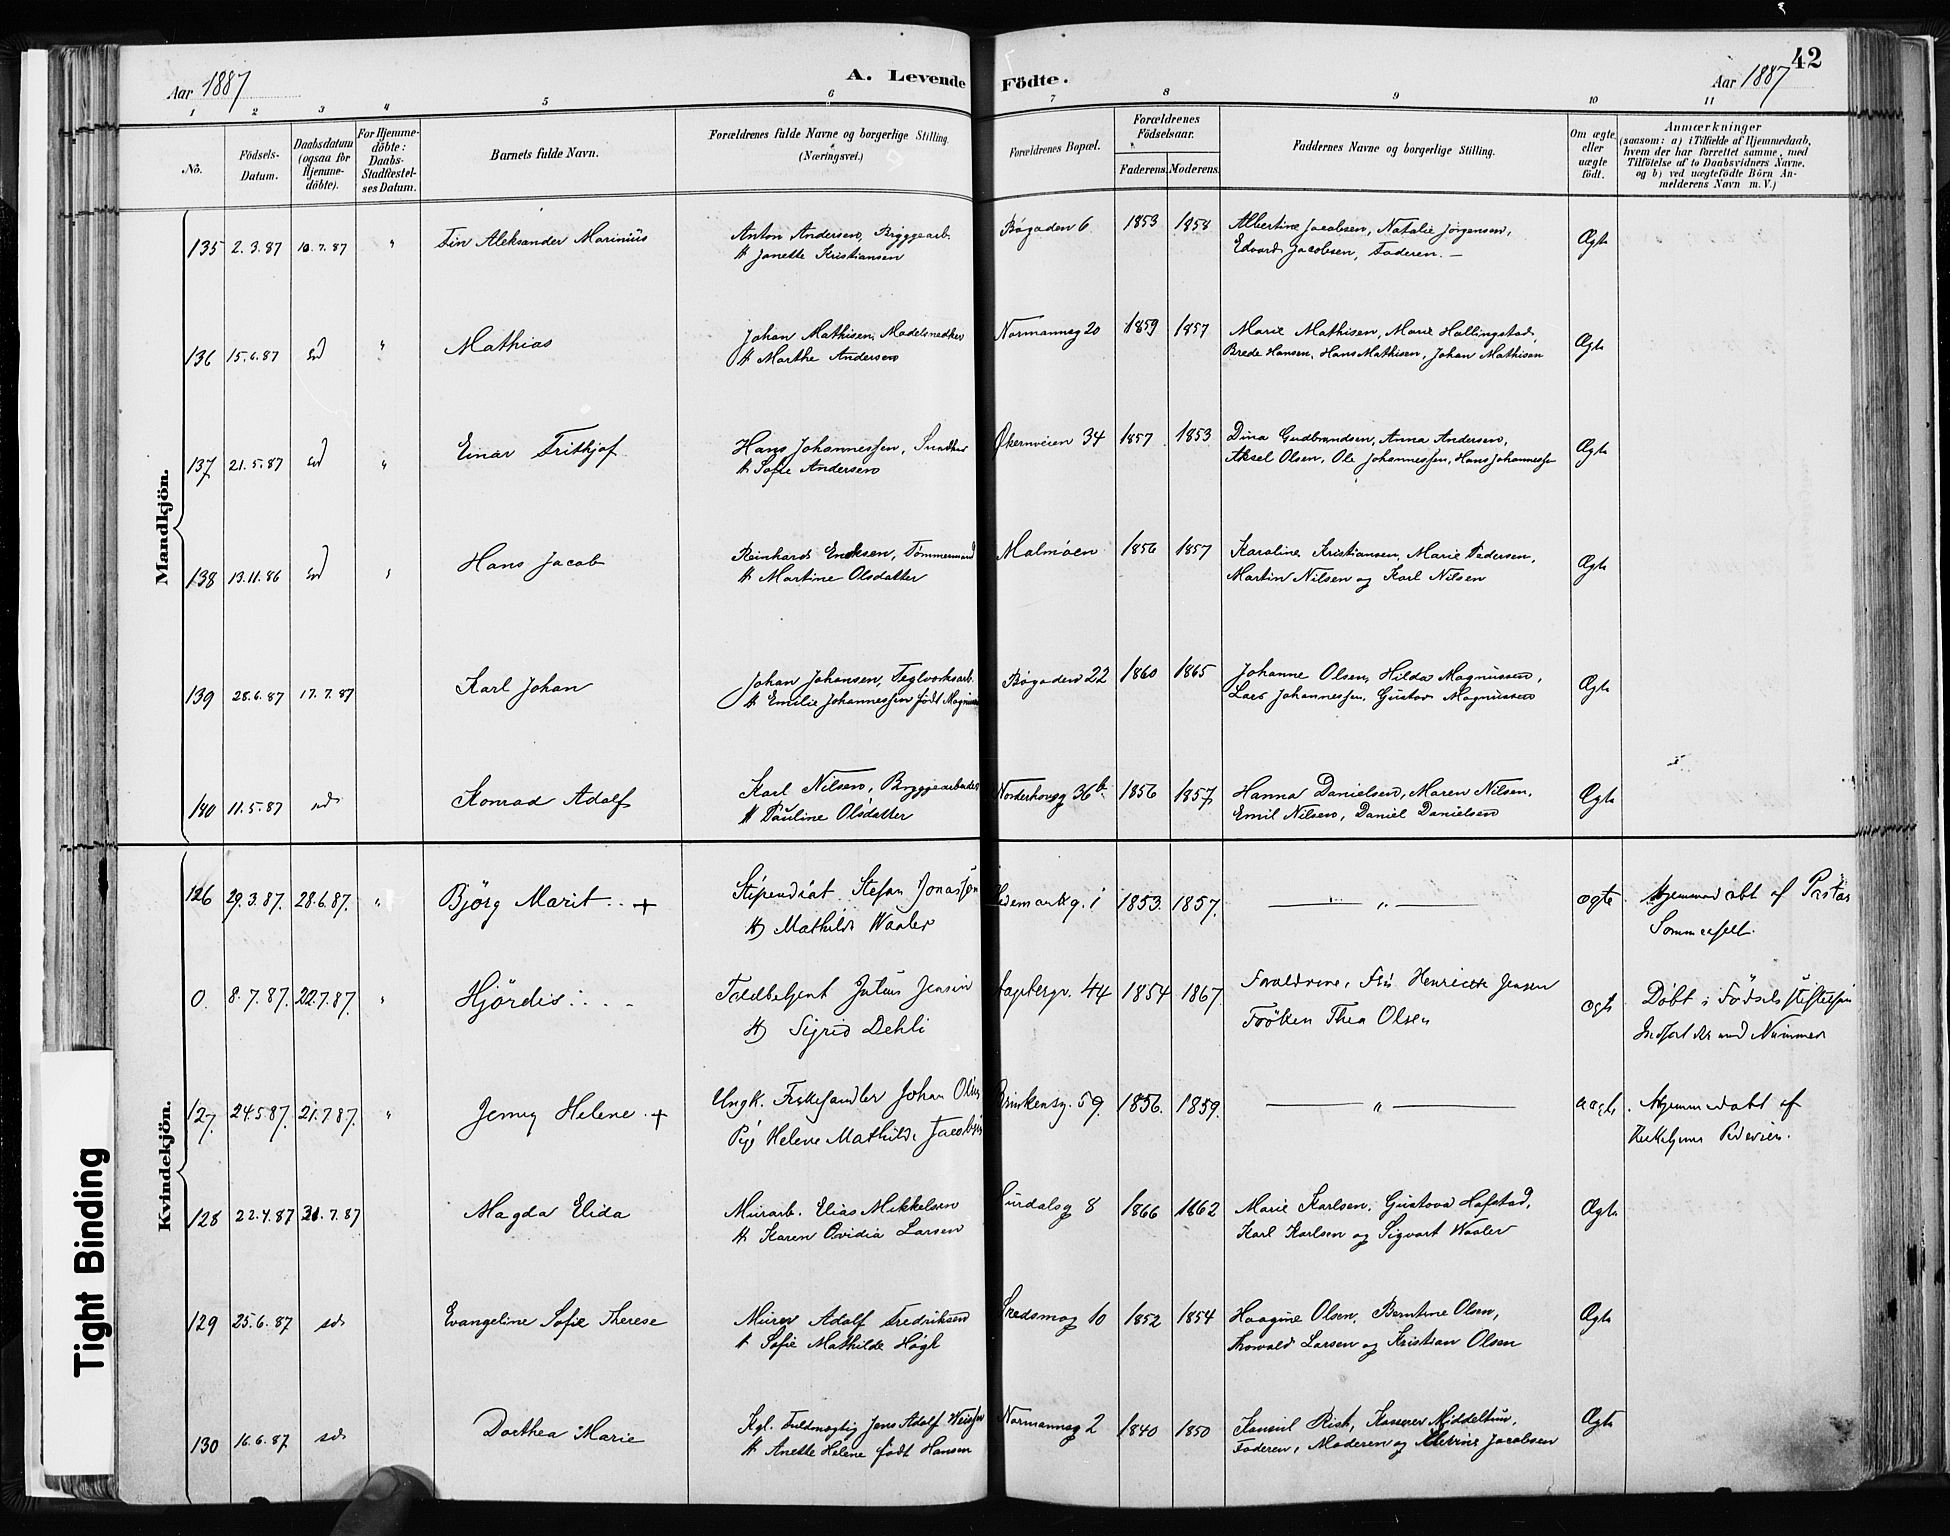 42
Aar 1887
A. Levende Födte.
Aar 1887
1 2 3 4 5 6 7 8 9 10 11
No.
Födsels-
Datum.
Daabsdatum
(ogsaa for
Hjemme-
döbte).
For Hjemme-
döbte:
Daabs-
Stadfæstel-
ses Datum.
Barnets fulde Navn.
Forældrenes fulde Navne og borgerlige Stilling
(Næringsvei.)
Forældrenes Bopæl.
Forældrenes
Födselsaar.
Faderens. Moderens.
Faddernes Navne og borgerlige Stilling.
Om ægte
eller
uægte
födt.
Anmærkninger
(saasom: a) i Tilfælde af Hjemmedaab,
hvem der har forrettet samme, med
Tilföielse af to Daabsvidners Navne,
og b) ved uægtefödte Börn An-
melderens Navn m. V.)
Mandkjön.
135 2.3.87 10.7.87 " Fin Aleksander Marinius
Anton Andersen, Bryggearb.
H Janette Kristiansen
Bøgaden 6 1853 1858
Albertine Jacobsen, Natalie Jørgensen,
Edvard Jacobsen, Faderen. —
Ægte
136 15.6.87 sd " Mathias
Johan Mathisen, Modelsnedker
H Marthe Andersen
Normannsg 20 1859 1857
Marie Mathisen, Marie Hallingstad,
Brede Hansen, Hans Mathisen, Johan Mathisen
Ægte
137 21.5.87 sd " Einar Frithjof
Hans Johannessen, Snedker
H Sofie Andersen
Økernveien 34 1857 1853
Dina Gudbrandsen, Anna Andersen,
Aksel Olsen, Ole Johannessen, Hans Johannessen
Ægte
138 13.11.86 sd " Hans Jacob
Reinhard Eriksen, Tømmermand
H Martine Olsdatter
Malmøen 1856 1857
Karoline Kristiansen, Marie Pedersen,
Martin Nilsen og Karl Nilsen
Ægte
139 28.6.87 17.7.87 Karl Johan
Johan Johansen, Teglverksarb.
H Emilie Johannessen født Magnussen
Bøgaden 22 1860 1865
Johanne Olsen, Hilda Magnussen,
Lars Johannessen, Gustav Magnussen
Ægte
140 11.5.87 sd Konrad Adolf
Karl Nilsen, Bryggearbeider
H Pauline Olsdatter
Norderhovsg 36b 1856 1857
Hanna Danielsen, Maren Nilsen,
Emil Nilsen, Daniel Danielsen
Ægte
Kvindekjön.
126 29.3.87. 28.6.87. " Björg Marit. +
Stipendiat Stefan Jonassen
H Mathilde Waaler
Hedemarksg. 1 1853. 1857.
— " —
ægte
Hjemmedøbt af Pastor
Sommerfelt.
0. 8.7.87. 22.7.87. " Hjördis
Toldbetjent Julius Jensen
H Sigrid Dehli
44 1854 1867.
Forældrene, Frk Henriette Jensen
Frøken Thea Olsen
ægte
Døbt i Fødselsstiftelsen
Indført der med Nummer
127. 24.5.87. 21.7.87. " Jenny Helene. +
Ungk. Fiskehandler Johan
Pige Helene Mathilde Jacobsen
59. 1856. 1859.
— " —
uægte
Hjemmedøbt af
Pedersen.
128 22.4.87 31.7.87 Magda Elida
Murarb. Elias Mikkelsen
H Karen Ovidia Larsen
Surdalsg 8 1866 1862
Marie Karlsen, Gustava Hafstad,
Karl Karlsen og Sigvart Waaler
Ægte
129 25.6.87 sd Evangeline Sofie Therese
Murer Adolf Fredriksen
H Sofie Mathilde Høgh
Skedsmog 10 1852 1854
Haagine Olsen, Berntine Olsen,
Thorvald Larsen og Kristian Olsen
Ægte
130 16.6.87. sd Dorthea Marie
Kgl. Fuldmægtig Jens Adolf
H Anette Helene født Hansen
Normannsg 2 1840 1850
Konsul Risk, Kasserer Middelthun,
Faderen, Moderen og Jacobsen
Ægte
Tight Binding